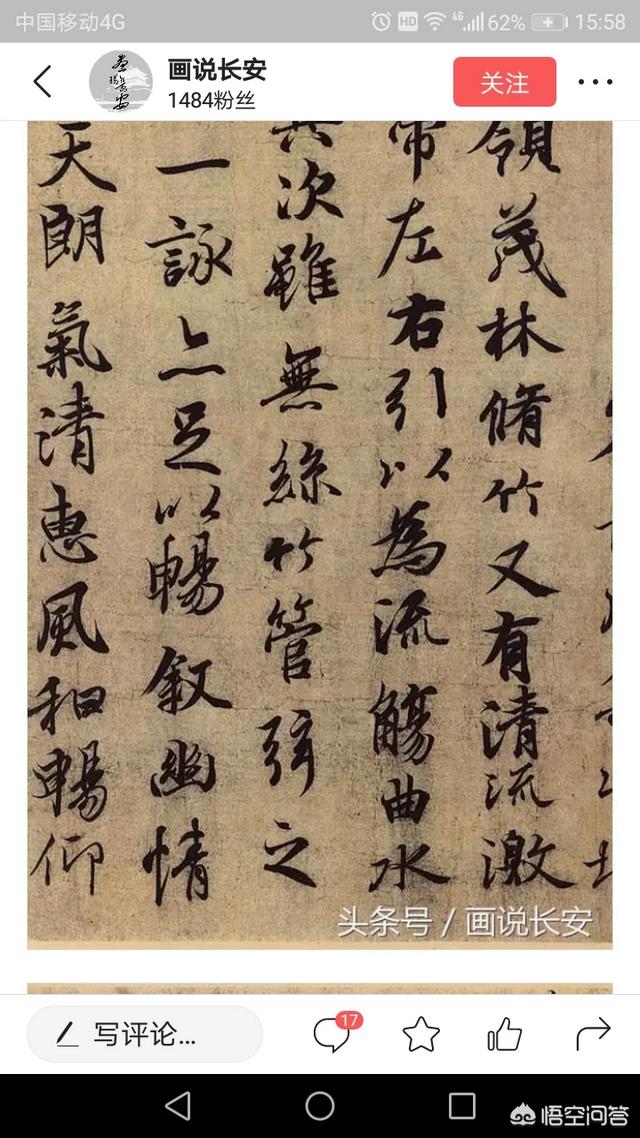 中国移动4G
HD 4G 62% 15:58
画说长安
1484粉丝
关注
領茂林脩竹又有清流激
帶左右引以為流觴曲水
其次雖無絲竹管弦之
一詠亦足以暢叙幽情
天朗氣清惠風和暢仰
头条号 / 画说长安
写评论...
17
悟空问答